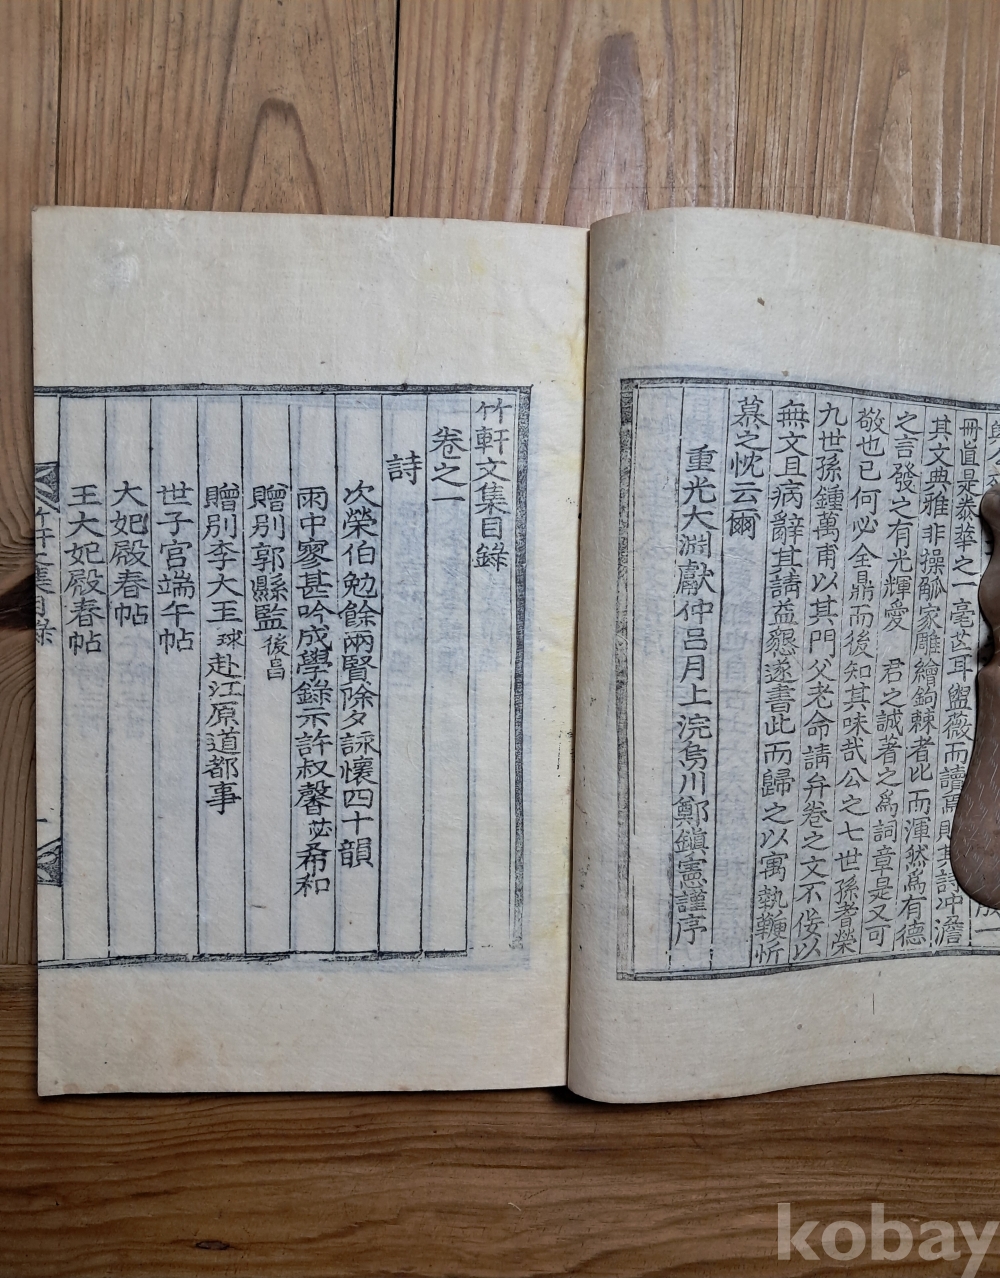 冊眞是泰華之一毫芒耳盥薇而讀焉則其詩冲澹
其文典雅非操觚家雕繪鉤棘者比而渾然爲有德
之言發之有光輝愛 君之誠著之爲詞章是又可
敬也已何必全鼎而後知其味哉公之七世孫耆榮
九世孫鍾萬甫以其門父老命請弁卷之文不佞以
無文且病辭其請益懇遂書此而歸之以寓執鞭忻
慕之忱云爾
重光大淵獻仲呂月上浣烏川鄭鎭憲謹序
竹軒文集目錄
卷之一
詩
次榮伯勉餘兩賢除夕詠懷四十韻
雨中寥甚吟成學錄示許叔馨希和
贈別郭縣監後昌
贈別李大王球赴江原道都事
世子宮端午帖
大妃殿春帖
王大妃殿春帖
kobay